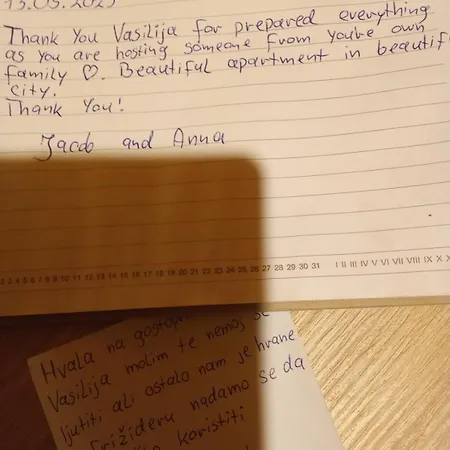 13.05.2023
Thank You Vasilija for prepared everything
as you are hosting someone from you're own
family ♡. Beautiful apartment in beautif
city.
Thank You!
Jacob and Anna
2 3 4 5 6 7 8 9 10 11 12 13 14 15 16 17 18 19 20 21 22 23 24 25 26 27 28 29 30 31 I II III IV V VI VII VIII IX X X
Hvala na gostopri
Vasilija molim te nemoj se
ljutiti ali ostalo nam je hrane
frižideru nadamo se da
koristiti